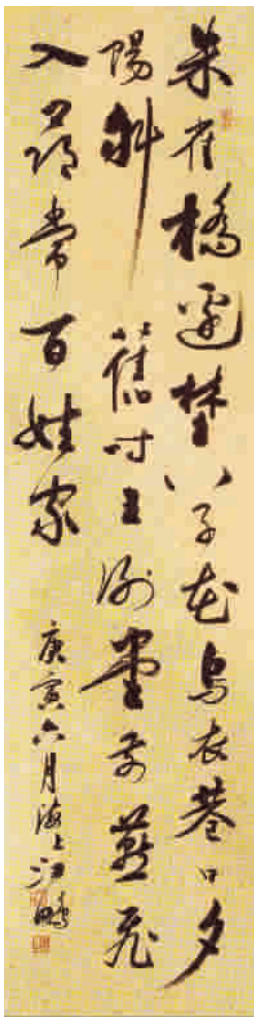 朱雀橋邊埜草花烏衣巷口夕
陽斜舊時王謝堂前燕飛
入尋常百姓家
庚寅六月海上江鵬